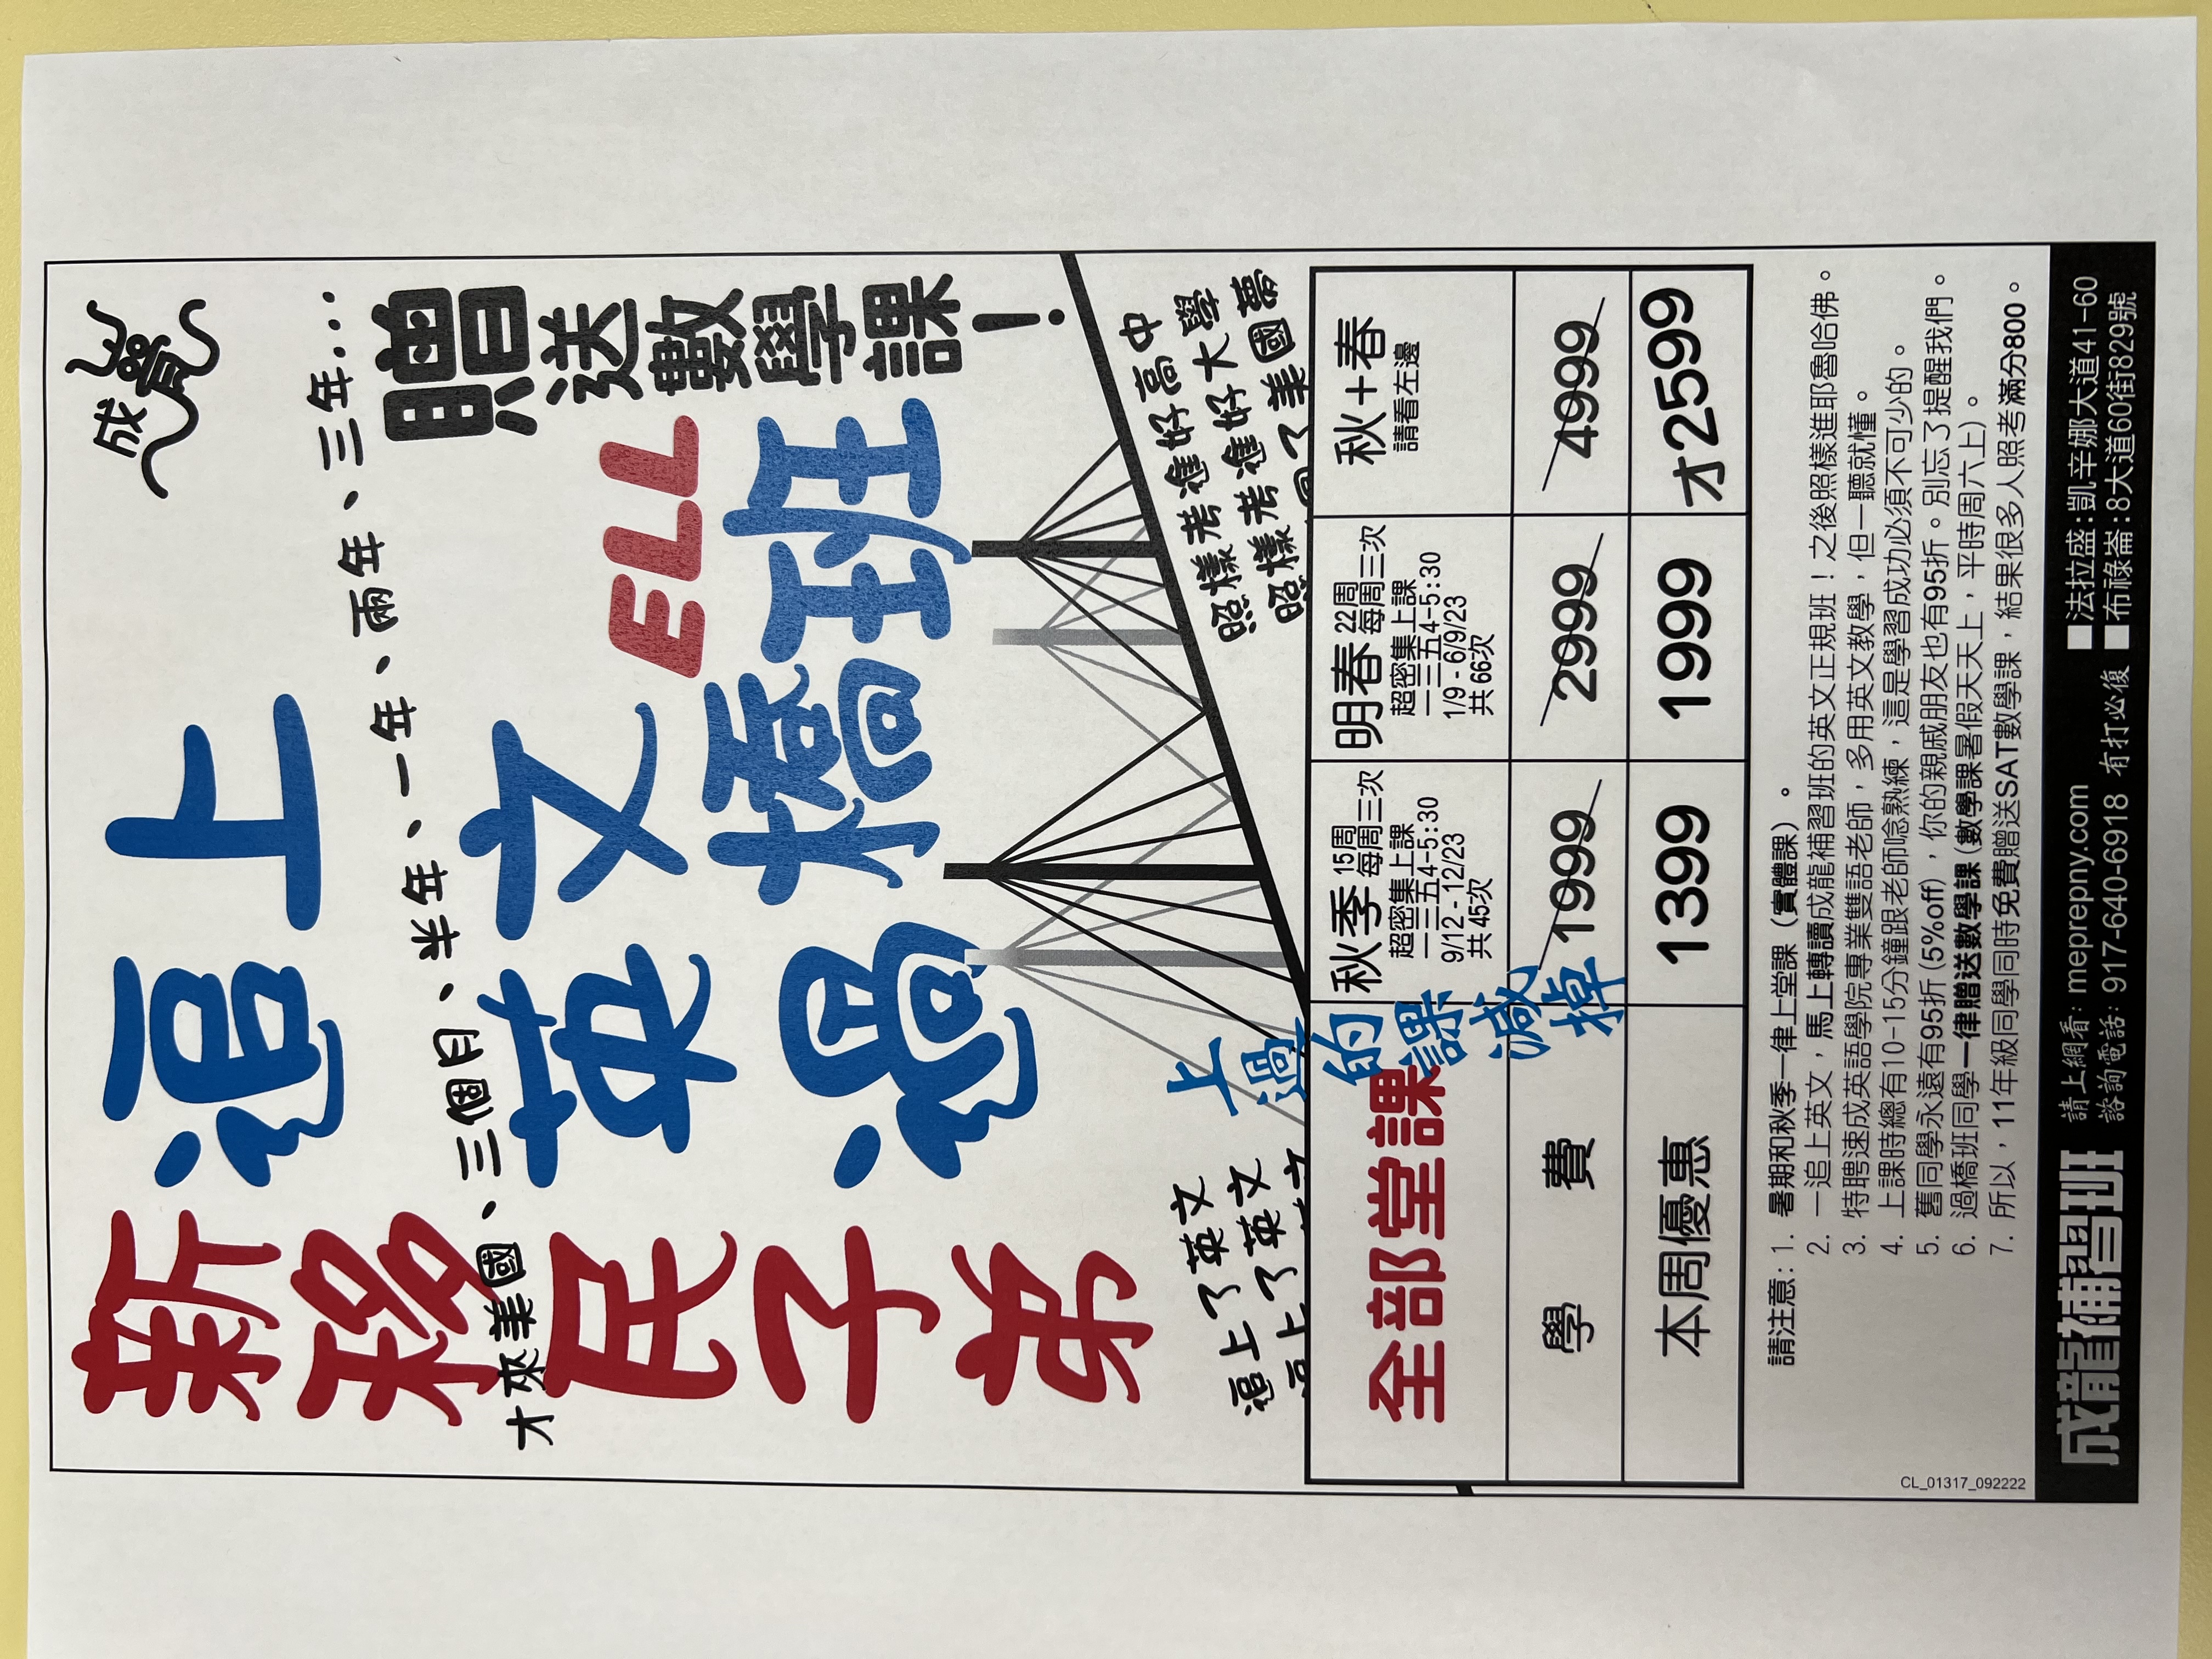 新移民子弟
追上
成龍
才來美國、三個月、半年、一年、兩年、三年...
英文
ELL
過橋班
贈送數學課!
追上了英文 照樣考進好高中
追上了英文 照樣考進好大學
照樣 了美國夢
上過的課減掉
全部堂課
秋季 15周 每周三次
超密集上課
一三五4-5:30
9/12 - 12/23
共 45次
明春 22周 每周三次
超密集上課
一三五4-5:30
1/9 - 6/9/23
共 66次
秋+春
請看左邊
學 費 1999 2999 4999
本周優惠 1399 1999 才2599
請注意: 1. 暑期和秋季一律上堂課 (實體課) 。
2. 一追上英文,馬上轉讀成龍補習班的英文正規班!之後照樣進耶魯哈佛。
3. 特聘速成英語學院專業雙語老師,多用英文教學,但一聽就懂。
4. 上課時總有10-15分鐘跟老師唸熟練,這是學習成功必須不可少的。
5. 舊同學永遠有95折 (5%off),你的親戚朋友也有95折。別忘了提醒我們。
6. 過橋班同學一律贈送數學課 (數學課暑假天天上,平時周六上) 。
7. 所以,11年級同學同時免費贈送SAT數學課,結果很多人照考滿分800。
CL_01317_092222
成龍補習班
請上網看: meprepny.com
諮詢電話: 917-640-6918 有打必復
■法拉盛:凱辛娜大道41-60
■布祿崙:8大道60街829號